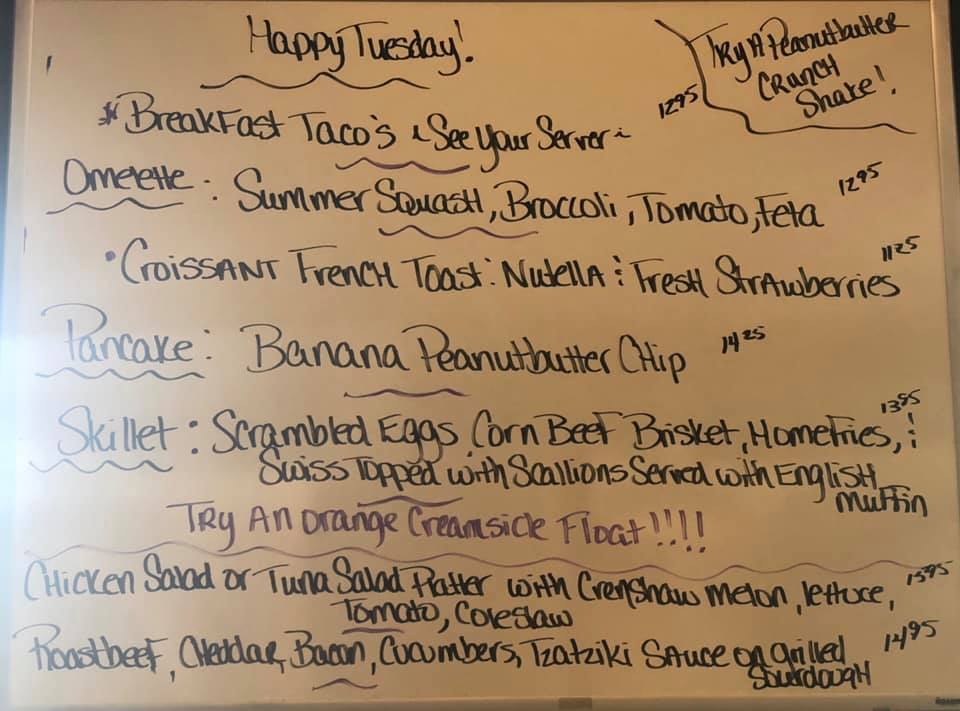 Happy Tuesday!
Try A Peanutbutter
Crunch
Shake!
*Breakfast Taco's ~See Your Server~ 12.95
Omelette: Summer Squash, Broccoli, Tomato, Feta 12.95
•Croissant French Toast: Nutella & Fresh Strawberries 11.25
Pancake: Banana Peanutbutter Chip 14.25
Skillet: Scrambled Eggs, Corn Beef Brisket, Homefries, & 13.95
Swiss Topped with Scallions Served with English
Muffin
Try An Orange Creamsicle Float!!!!
Chicken Salad or Tuna Salad Platter with Crenshaw Melon, lettuce, 15.95
Tomato, Coleslaw
Roastbeef, Cheddar, Bacon, Cucumbers, Tzatziki Sauce on grilled 14.95
Sourdough